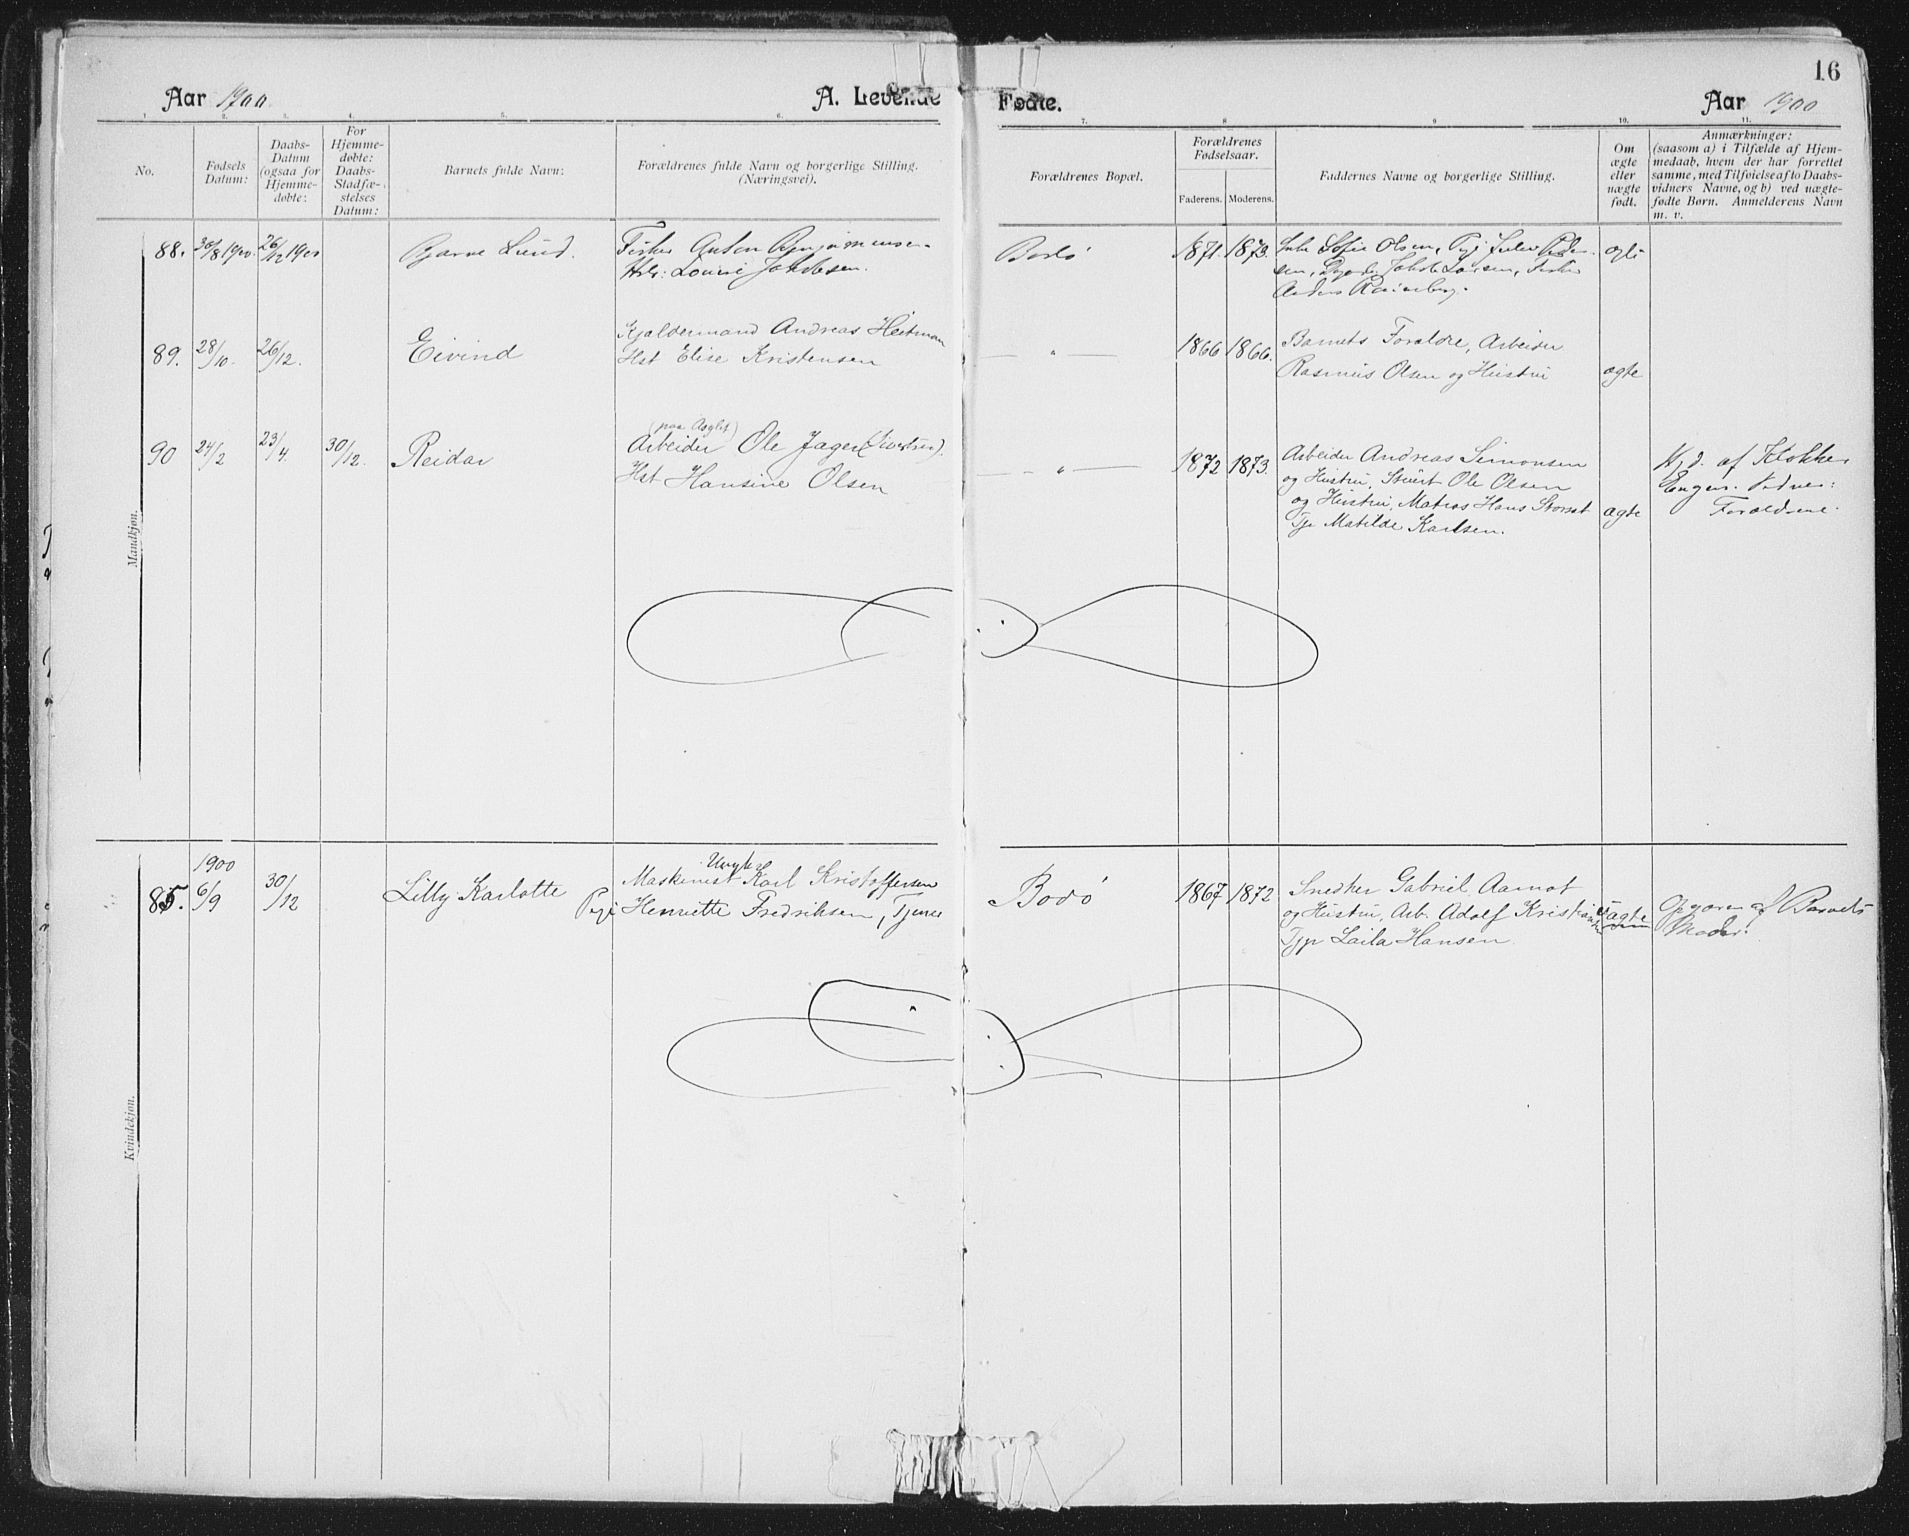 16
Aar 1900
A. Levende Fødte.
Aar 1900
1. 2. 3. 4. 5. 6. 7. 8 9 10. 11.
No.
Fødsels Datum:
Daabs-
Datum
(ogsaa for
Hjemme-
døbte:
For
Hjemme-
døbte:
Daabs-
Stadfæ-
stelses
Datum:
Barnets fulde Navn:
Forældrenes fulde Navn og borgerlige Stilling.
(Næringsvei).
Forældrenes Bopæl.
Forældrenes
Fødselsaar.
Faderens. Moderens.
Faddernes Navne og borgerlige Stilling.
Om
ægte
eller
uægte
født.
Anmærkninger:
(saasom a) i Tilfælde af Hjem-
medaab, hvem der har forrettet
samme, med Tilføielse af to Daabs-
vidners Navne, og b) ved uægte-
fødte Børn. Anmelderens Navn
m. v.
Mandkjøn.
88. 30/8 1900. 26/12 1900 Bjarne Lund.
Fisker Anton Benjaminsen.
Hst: Lovise Jakobsen.
Bodø 1871. 1873.
Sofie Olsen,
Jakob Larsen, Fisker
Anders
ægte
89. 28/10. 26/12. Eivind
Kjældermand Andreas Heitman
Hst Elise Kristensen
— " — 1866 1866.
Barnets Forældre, Arbeider
Rasmus Olsen og Hustru
ægte
90 24/2 23/4. 30/12. Reidar
Arbeider Ole Jager (Sivertsen).
Hst Hansine Olsen
— " — 1872 1873.
Arbeider Andreas Simonsen
og Hustru, Stuert Ole Olsen
og Hustru, Matros Hans Storset
Tje Matilde Karlsen.
ægte
Hjd. af Klokker
Engen. Vidner:
Forældrene.
Kvindekjøn.
85. 1900 6/9 30/12 Lilly Karlotte
Ungk.
Maskinist Karl Kristoffersen
Pige Henriette Fredriksen, Tjener
Bodø 1867 1872
Snedker Gabriel Aamot
og Hustru, Arb. Adolf Kristiansen
Tjp Laila Hansen.
Uægte
Opgaven af Barnets
Moder.